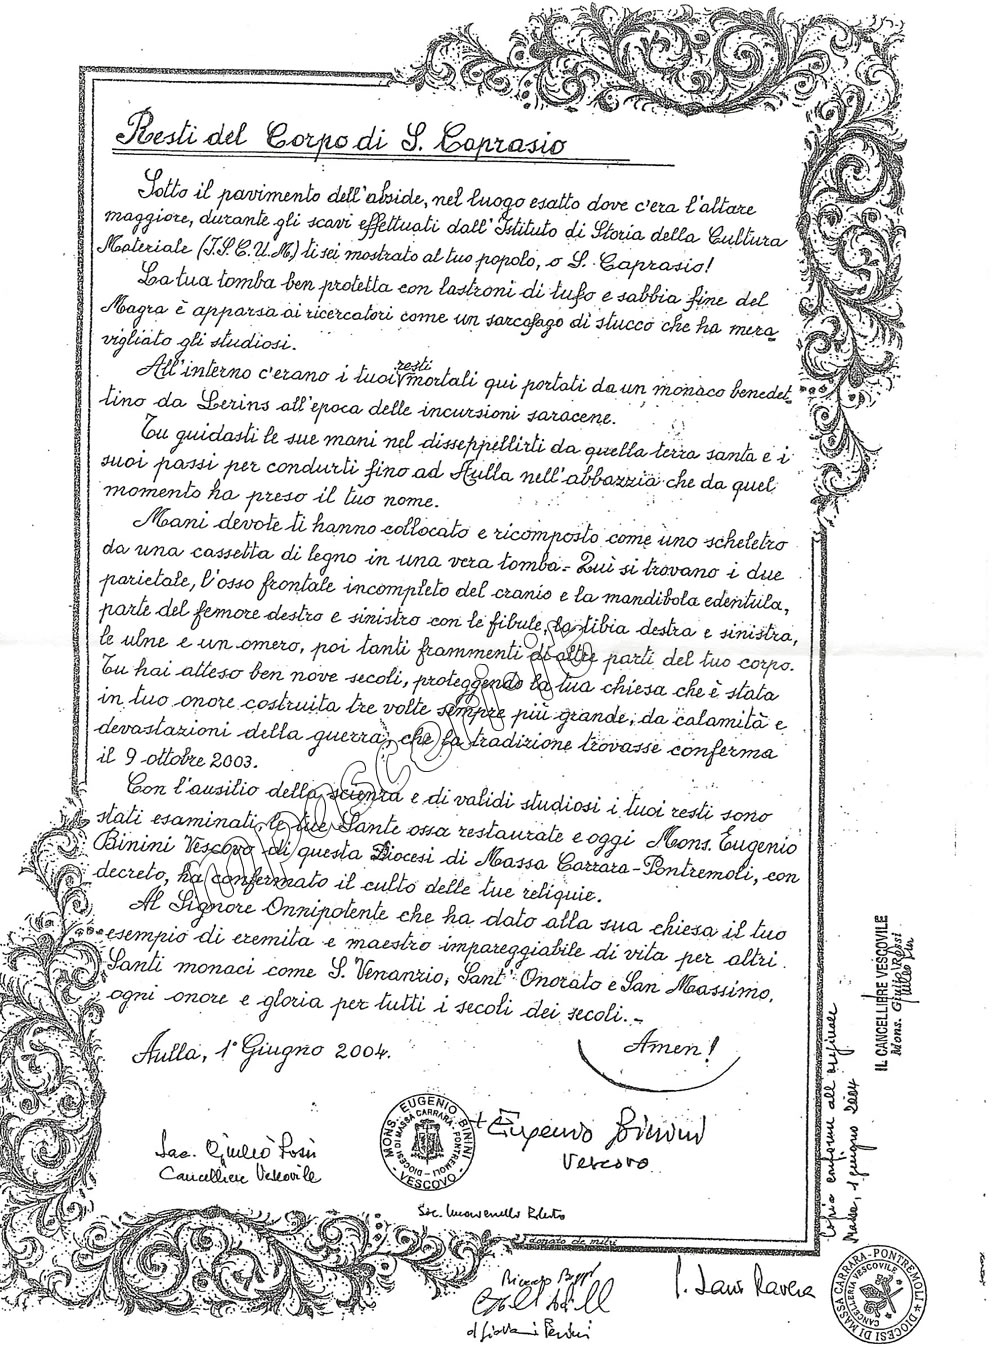 Resti del Corpo di S. Caprasio
Sotto il pavimento dell'abside, nel luogo esatto dove c'era l'altare
maggiore, durante gli scavi effettuati dall'Istituto di Storia della Cultura
Materiale (I.S.C.U.M) ti sei mostrato al tuo popolo, o S. Caprasio!
La tua tomba ben protetta con lastroni di tufo e sabbia fine del
Magra è apparsa ai ricercatori come un sarcofago di stucco che ha mera
vigliato gli studiosi.
All'interno c'erano i tuoi resti mortali qui portati da un monaco benedet
tino da Lerins all'epoca delle incursioni saracene.
Tu guidasti le sue mani nel disseppellirti da quella terra santa e i
suoi passi per condurti fino ad Aulla nell'abbazzia che da quel
momento ha preso il tuo nome.
Mani devote ti hanno collocato e ricomposto come uno scheletro
da una cassetta di legno in una vera tomba.- Quì si trovano i due
parietale, l'osso frontale incompleto del cranio e la mandibola edentula,
parte del femore destro e sinistro con le fibule, la tibia destra e sinistra,
le ulne e un omero, poi tanti frammenti di altre parti del tuo corpo.
Tu hai atteso ben nove secoli, proteggendo la tua chiesa che è stata
in tuo onore costruita tre volte sempre più grande, da calamità e
devastazioni della guerra, che la tradizione trovasse conferma
il 9 ottobre 2003.
Con l'ausilio della scienza e di validi studiosi i tuoi resti sono
stati esaminati, le tue Sante ossa restaurate e oggi Mons. Eugenio
Binini Vescovo di questa Diocesi di Massa Carrara-Pontremoli, con
decreto, ha confermato il culto delle tue reliquie.
Al Signore Onnipotente che ha dato alla sua chiesa il tuo
esempio di eremita e maestro impareggiabile di vita per altri
Santi monaci come S. Venanzio, Sant'Onorato e San Massimo,
ogni onore e gloria per tutti i secoli dei secoli.-
Aulla, 1° Giugno 2004.
Amen!
MONS. EUGENIO BININI VESCOVO
DIOCESI DI MASSA CARRARA-PONTREMOLI
+ Eugenio Binini
Vescovo
Sac. Giulio Rossi
Cancelliere Vescovile
donato de
P. Luis Ravera
Copia conforme all'originale
Massa, 1 giugno 2004
IL CANCELLIERE VESCOVILE
Mons. Giulio Rossi
DIOCESI DI MASSA CARRARA-PONTREMOLI
CANCELLERIA VESCOVILE